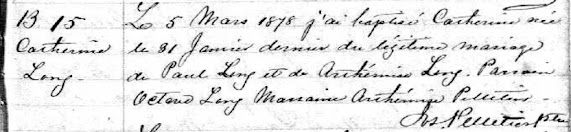 B 15 Le 5 Mars 1878 j'ai baptisé Catherine née
Catherine le 31 Janvier dernier du légitime mariage
Long. de Paul Long et de Arthémise Long. Parrain
Octave Long Marraine Arthémise Pelletier.
Jos Pelletier Ptre